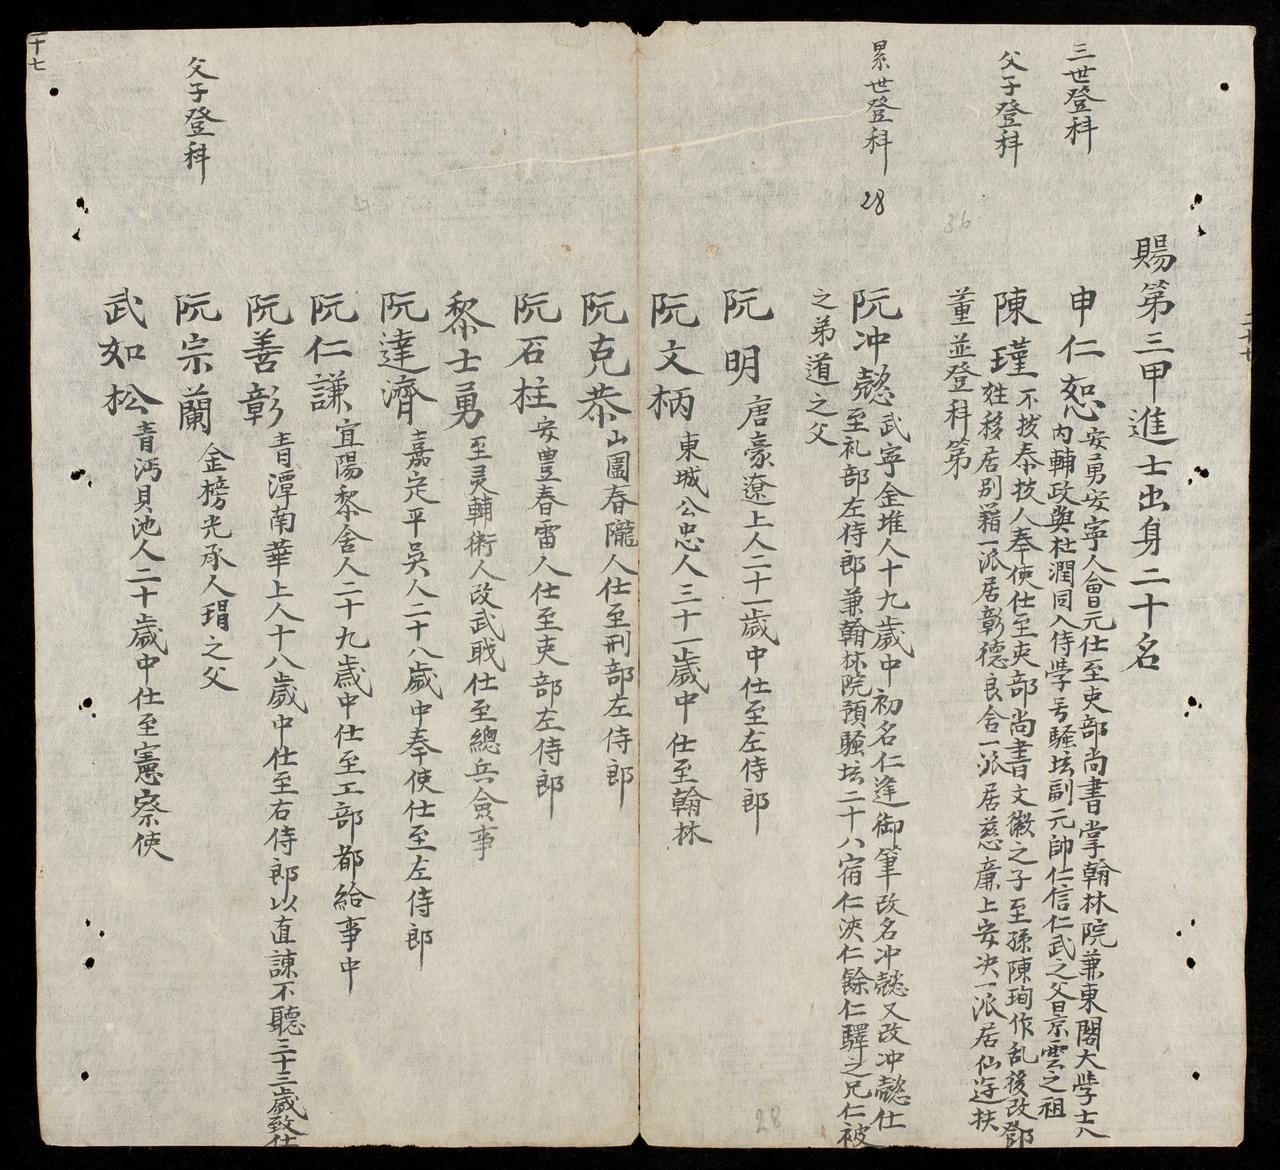 三世登科
父子登科
累世登科
28
36
賜第三甲進士出身二十名
申仁恕
安勇安寧人會元仕至吏部尚書掌翰林院兼東閣大學士入
内輔政與杜潤同入侍學号騷坛副元帥仁信仁武之父景雲之祖
陳瑾
不拔泰拔人奉使仕至吏部尚書文徽之子至孫陳珣作乱後改鄧
姓移居別籍一派居彰德良舍一派居慈廉上安决一派居仙遊扶
董並登科第
阮冲懿
武寧金堆人十九歲中初名仁逢御筆改名冲懿又改冲懿仕
至礼部左侍郎兼翰林院預騷坛二十八宿仁浹仁餘仁驛之兄仁被
之弟道之父
阮明
唐豪遼上人二十一歲中仕至左侍郎
阮文柄
東城公忠人三十一歲中仕至翰林
阮克恭
山圍春隴人仕至刑部左侍郎
阮石柱
安豊春雷人仕至吏部左侍郎
黎士勇
至灵輔術人改武戰仕至總兵僉事
阮達濟
嘉定平吳人二十八歲中奉使仕至左侍郎
阮仁謙
宜陽黎舍人二十九歲中仕至工部都給事中
阮善彰
青潭南華上人十八歲中仕至右侍郎以直諫不聽三十三歲致仕
父子登科
阮宗蘭
金榜光承人琄之父
武如松
青沔貝池人二十歲中仕至憲察使
二十七
28